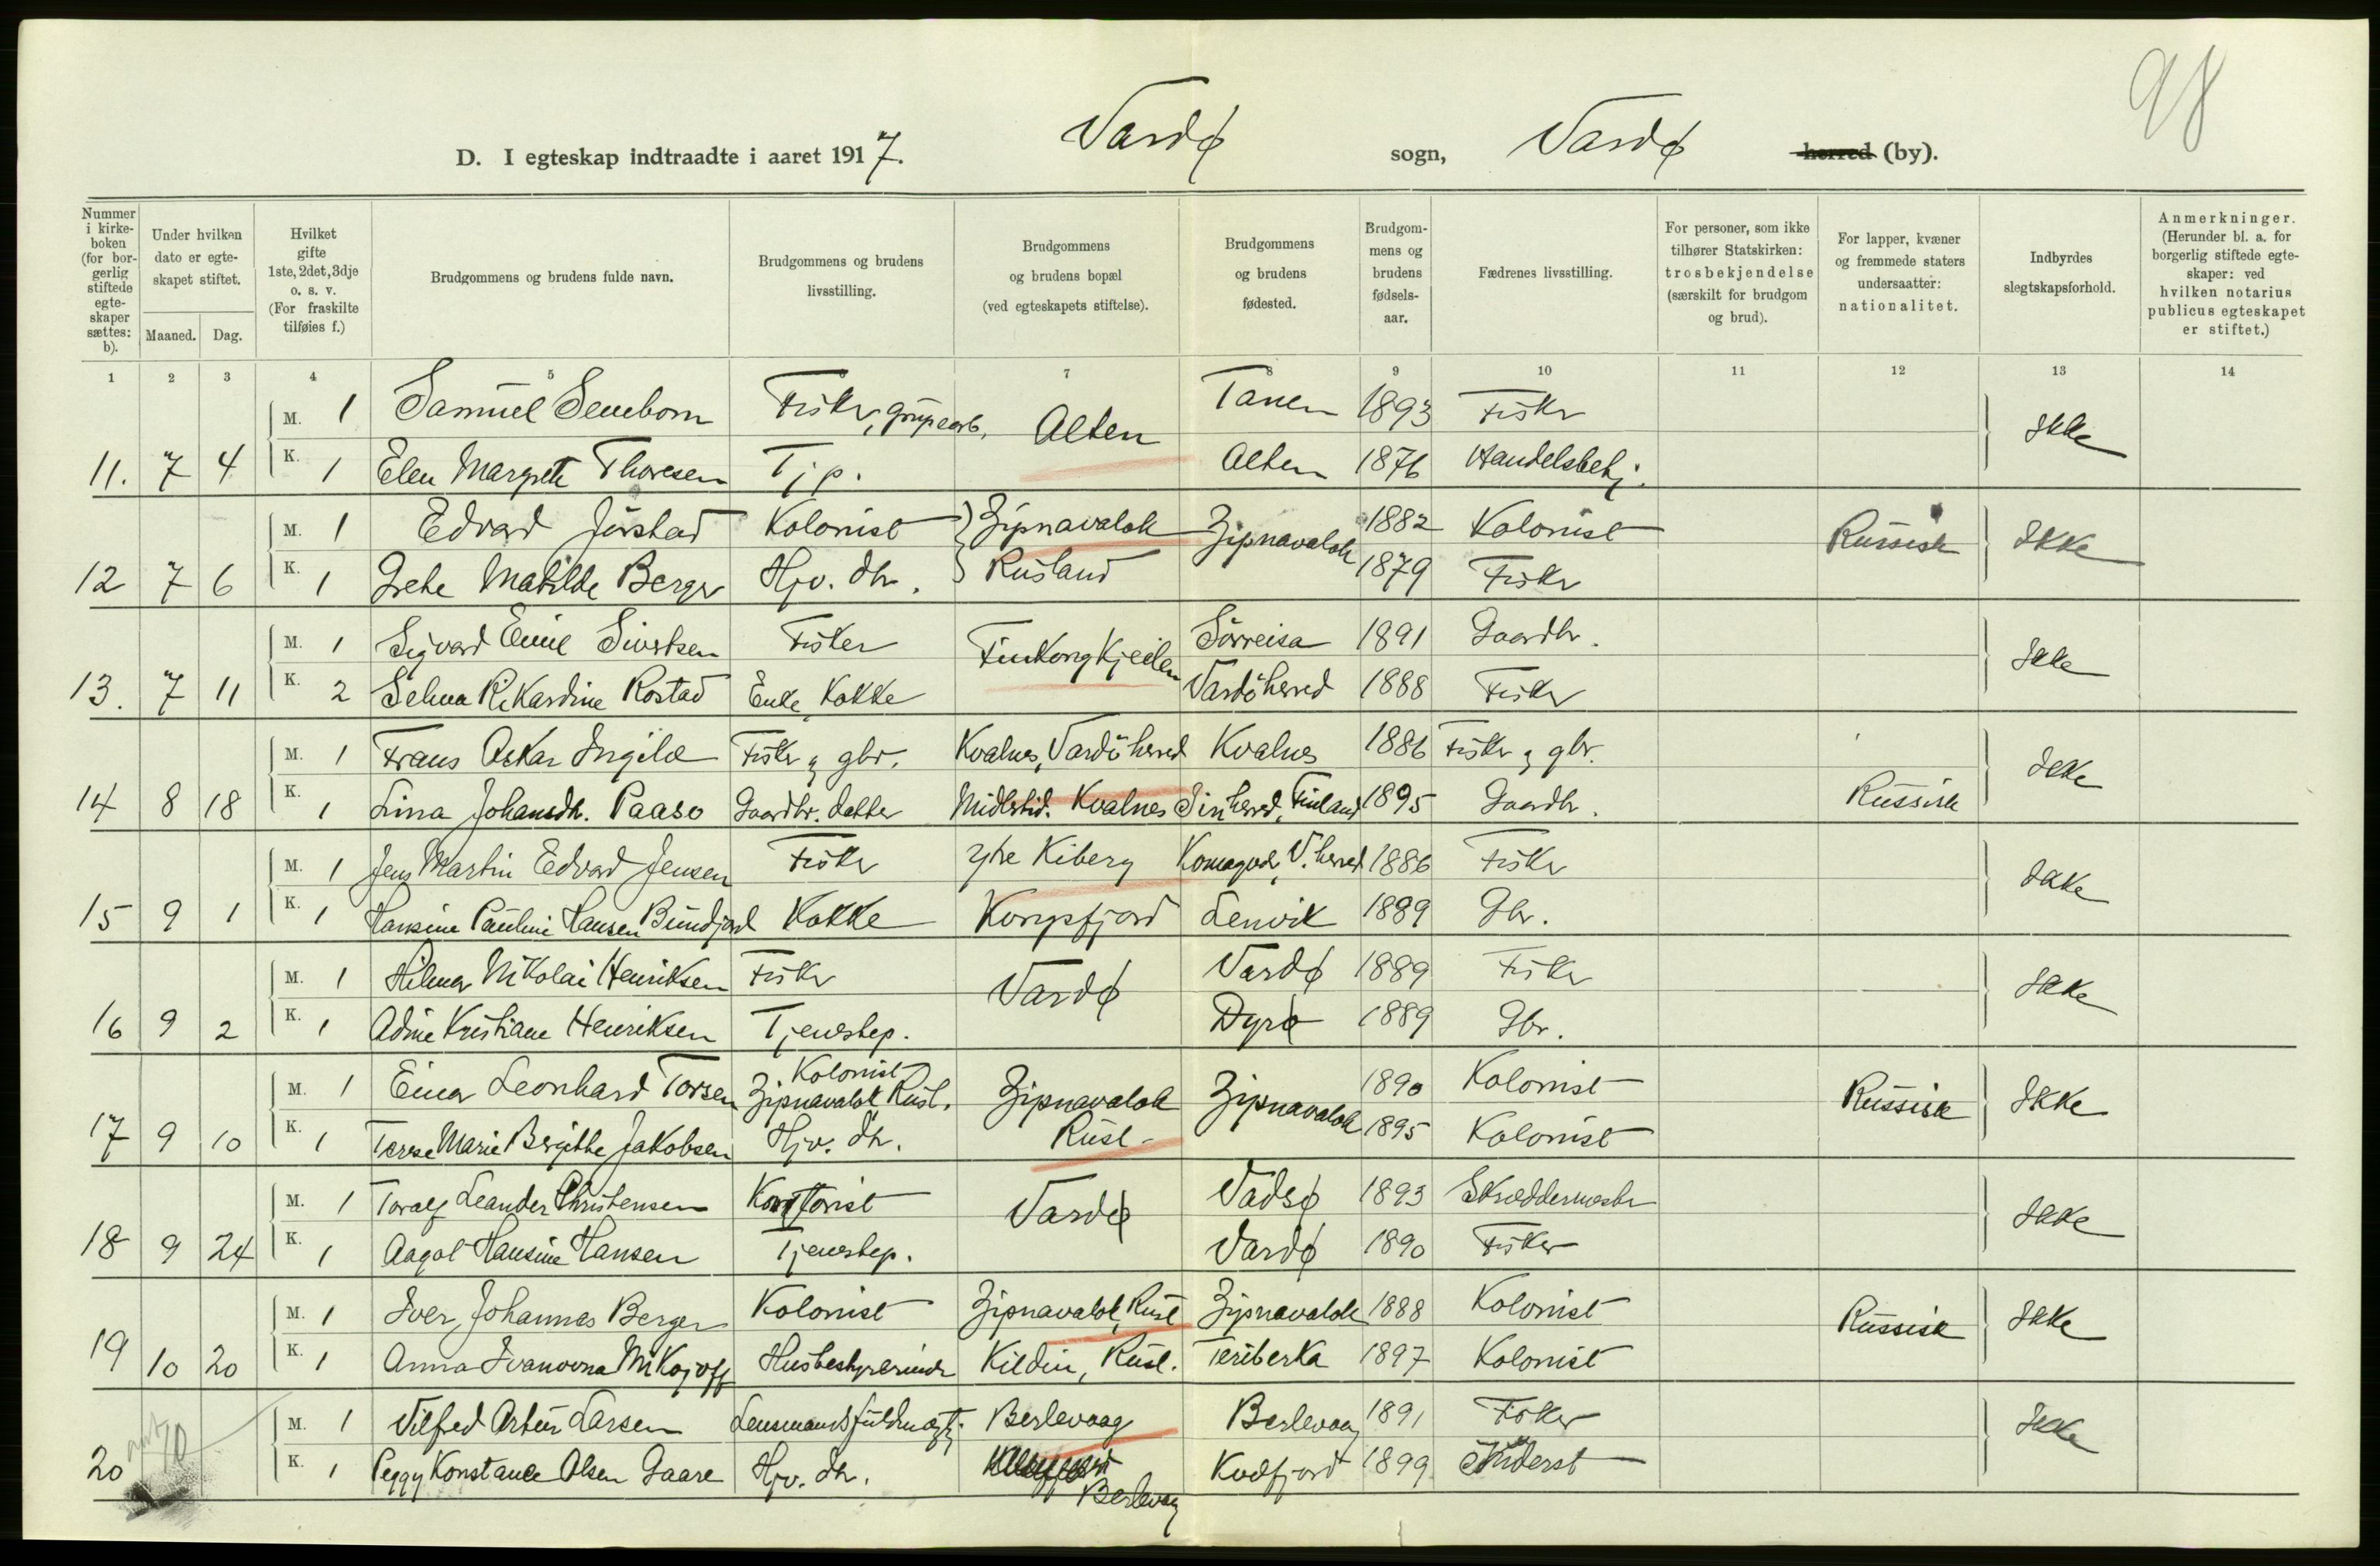 98
D. I egteskap indtraadte i aaret 1917. Vardø sogn, Vardø herred (by).
Nummer i kirkeboken (for borgerlig stiftede egteskaper sættes: b).
Under hvilken dato er egteskapet stiftet.
Maaned. Dag.
Hvilket gifte 1ste, 2det, 3dje o. s. v. (For fraskilte tilføies f.)
Brudgommens og brudens fulde navn.
Brudgommens og brudens livsstilling.
Brudgommens og brudens bopæl (ved egteskapets stiftelse).
Brudgommens og brudens fødested.
Brudgommens og brudens fødselsaar.
Fædrenes livsstilling.
For personer, som ikke tilhører Statskirken: trosbekjendelse (særskilt for brudgom og brud).
For lapper, kvæner og fremmede staters undersaatter: nationalitet.
Indbyrdes slegtskapsforhold.
Anmerkninger. (Herunder bl. a. for borgerlig stiftede egteskaper: ved hvilken notarius publicus egteskapet er stiftet.)
1 2 3 4 5 6 7 8 9 10 11 12 13 14
M. 1 Samuel Seneborn Fisker, grubearb. Alten Tanen 1893 Fisker Ikke
11. 7 4 K. 1 Elen Margrete Thoresen Tjp. Alten 1876 Handelsbetj.
M. 1 Edvard Jörstad Kolonist Zipnavalok Zipnavalok 1882 Kolonist Russisk Ikke
12 7 6 K. 1 Grethe Matilde Berger Hjv. dtr. Rusland 1879 Fisker
M. 1 Sigvard Emil Sivertsen Fisker Finkongkjeilen Sörreisa 1891 Gaardbr. Ikke
13. 7 11 K. 2 Selma Rikardine Rostad Enke, Kokke Vardö herred 1888 Fisker
M. 1 Frans Oskar Ingilæ Fisker og gbr. Kvalnes, Vardö herred Kvalnes 1886 Fisker og gbr. Ikke
14 8 18 K. 1 Lina Johansdtr. Paaso Gaardbr. datter Midlertid. Kvalnes herred, Finland 1895 Gaardbr. Russisk
M. 1 Jens Martin Edvard Jensen Fisker ytre Kiberg Komagvær, V. herred 1886 Fisker Ikke
15 9 1 K. 1 Hansine Pauline Hansen Bundjord Kokke Kongsfjord Lenvik 1889 Gbr.
M. 1 Hilmar Nikolai Henriksen Fisker Vardø Vardø 1889 Fisker Ikke
16 9 2 K. 1 Adine Kristiane Henriksen Tjenestep. Dyrø 1889 Gbr.
M. 1 Einar Leonhard Torsen Kolonist Zipnavalok Rusl. Zipnavalok Zipnavalok 1890 Kolonist Russisk Ikke
17 9 10 K. 1 Terese Marie Birgitte Jakobsen Hjv. dtr. Rusl. 1895 Kolonist
M. 1 Toralf Leander Christensen Kontorist Vardø Vadsø 1893 Skræddermester Ikke
18 9 24 K. 1 Aagot Hansine Hansen Tjenestep. Vardø 1890 Fisker
M. 1 Iver Johannes Berger Kolonist Zipnavalok, Rusl Zipnavalok 1888 Kolonist Russisk Ikke
19 10 20 K. 1 Anna Ivanovna Nikojoff Husbestyrerinde Kildin, Rusl. Teriberka 1897 Kolonist
M. 1 Vilfred Artur Larsen Lensmandsfuldmægtig Berlevaag Berlevaag 1891 Fisker Ikke
20 10 K. 1 Peggy Konstance Olsen Gaare Hjv. dtr. Berlevaag Kvdfjord 1899